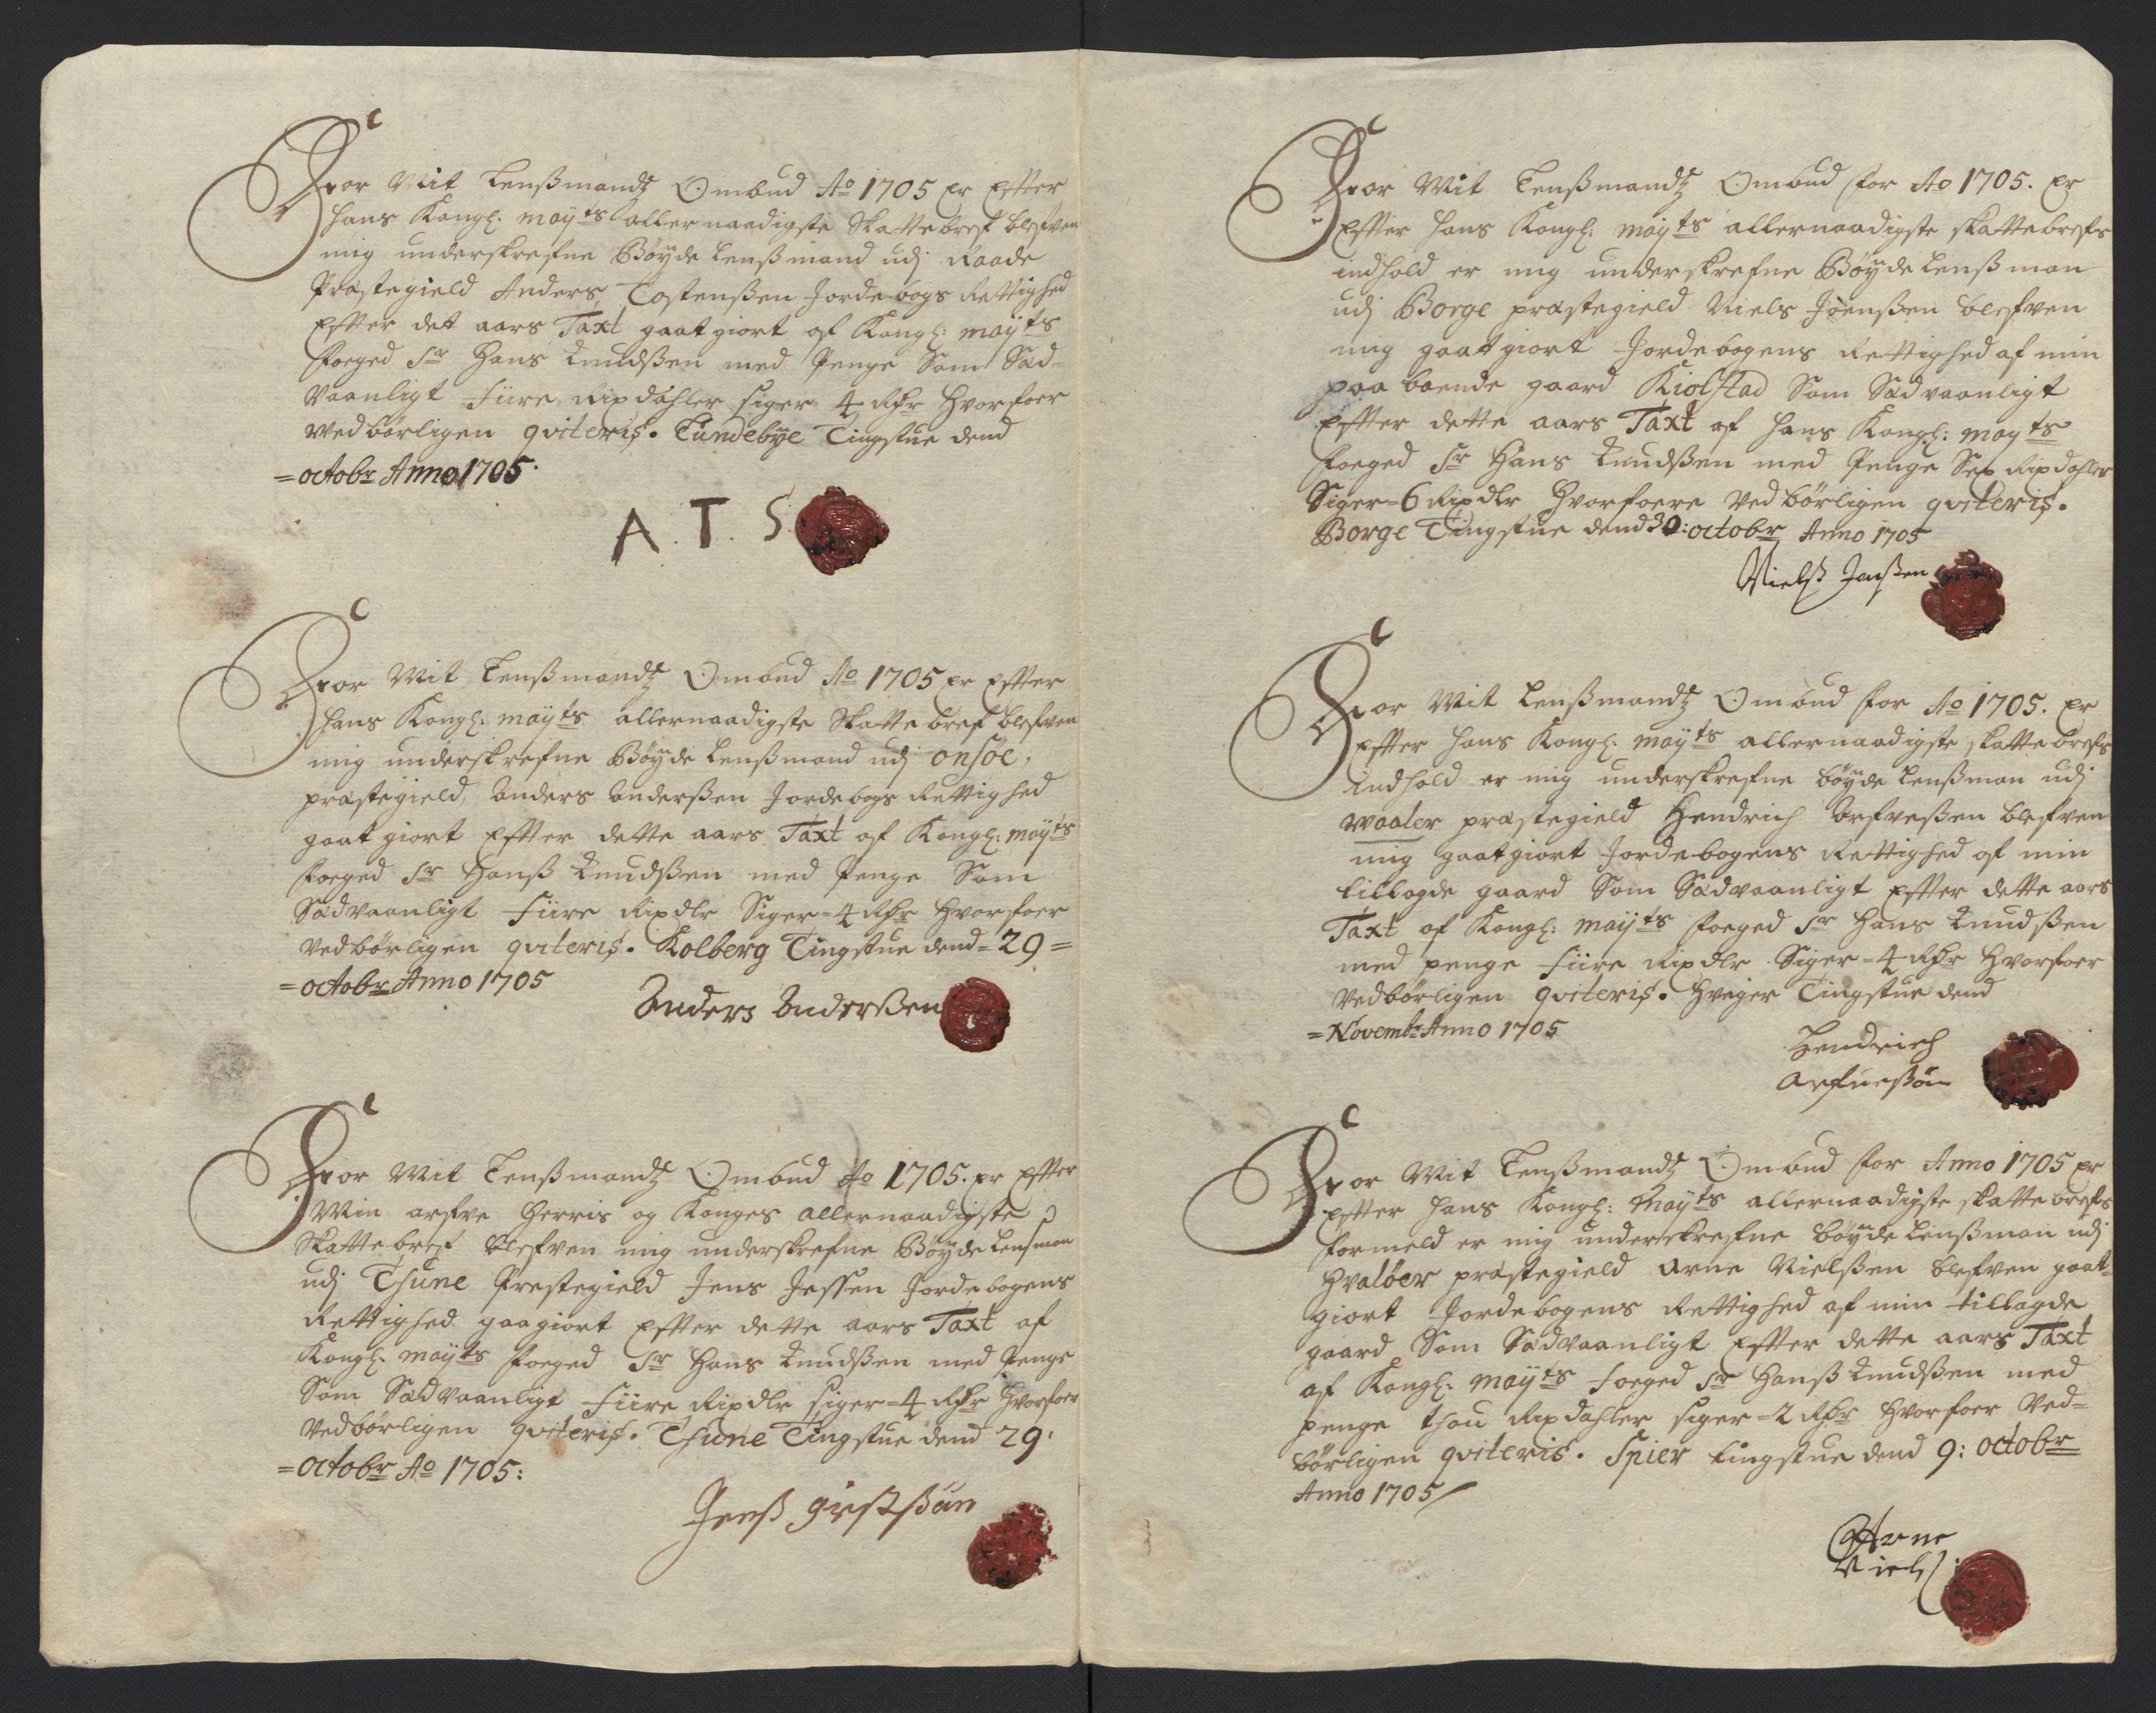 For Mit Lenßmandz Ombud Ao 1705 er Effter
Hans Kongl. mayts allernaadigste Skattebref blefven
mig underskrefne Böyde Lenßmand udj Raade
Præstegield Anders Tostenßen Jordebogs Rettighed
Effter det aars Taxt gaatgiort af Kongl: mayts
Foeged Sr Hans Knudßen med Penge Som Sæd-
vaanligt Fiire Rixdahler siger 4 Rdr Hvorfoer
vedbörligen qviteris. Tundebye Tingstue dend
=octobr Anno 1705.
A. T. S
For Mit Lenßmandz Ombud Ao 1705 er Effter
Hans Kongl: mayts allernaadigste Skattebref blefven
mig underskrefne Böyde Lenßmand udj onsöe,
præstegield, Anders Anderßen Jordebogs Rettighed
gaatgiort Effter dette aars Taxt af Kongl: mayts
Foeged Sr Hanß Knudßen med Penge Som
Sædvaanligt Fiire Rixdlr Siger=4 Rdr Hvorfoer
vedbörligen qviteris. Kolberg Tingstue dend=29=
=octobr Anno 1705
Anders Anderßen
For Mit Lenßmandz Ombud Ao 1705. er Effter
Min arfve Herris og Konges allernaadigste
Skattebref blefven mig underskrefne Böyde Lensman
udj Thune Prestegield Jens Jessen Jordebogens
Rettighed gaagiort Effter dette aars Taxt af
Kongl. mayts Foeged Sr Hans Knudßen med Penge
Som Sædvaanligt Fiire Rixdlr siger=4 Rdr Hvorfoer
vedbörligen qviteris. Thune Tingstue dend 29.
=octobr Ao 1705:
Jenß
For Mit Lenßmandz Ombud for Ao 1705. er
Effter Hans Kongl: mayts allernaadigste skattebrefs
indhold er mig underskrefne Böyde Lenßman
udj Borge præstegield Niels Joenßen blefven
mig gaatgiort Jordebogens Rettighed af min
paa boende gaard Kiolstad Som Sædvaanligt
Effter dette aars Taxt af Hans Kongl: mayts
Foeged Sr Hans Knudßen med Penge Sex Rixdahler
Siger=6 Rixdlr Hvorfoere vedbörligen qviteris.
Borge Tingstue dend 30: octobr Anno 1705
Nielß Jonßen
For Mit Lenßmandz Ombud for Ao 1705. er
Effter Hans Kongl. mayts allernaadigste skattebrefs
Indhold er mig underskrefne böyde Lenßman udj
Waaler præstegield Hendrich Arfveßen blefven
mig gaatgiort Jordebogens Rettighed af min
tillagde gaard Som Sædvaanligt Effter dette aars
Taxt af Kongl: mayts Foeged Sr Hans Knudßen
med penge Fiire Rixdlr Siger=4 Rdr Hvorfoer
vedbörligen qviteris. Hveger Tingstue dend
=Novembr Anno 1705
Hendrich
Arfueßön
For Mit Lenßmandz Ombud for Anno 1705 er
Effter Hans Kongl: Mayts allernaadigste skattebrefs
formeld er mig underskrefne böyde Lenßman udj
Hvalöer præstegield Arne Nielßen blefven gaat-
giort Jordebogens Rettighed af min tillagde
gaard Som Sædvaanligt Effter dette aars Taxt
af Kongl. mayts Foeged Sr Hanß Knudßen med
penge thou Rixdahler siger=2 Rdr Hvorfoer ved=
börligen qviteris. Spier tingstue dend 9: octobr
Anno 1705
Arne
Niels